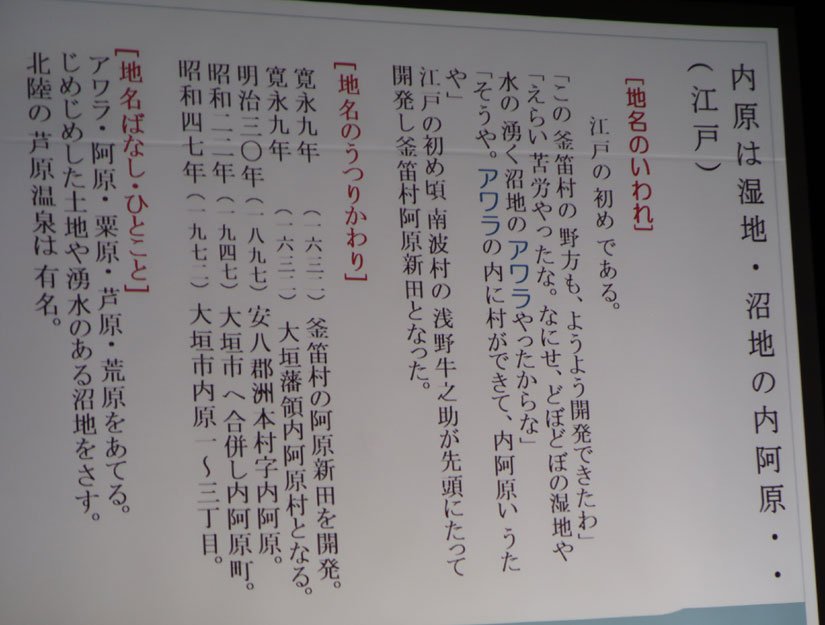 内原は湿地・沼地の内阿原・・
（江戸）
[地名のいわれ]
江戸の初めである。
「この釜笛村の野方も、ようよう開発できたわ」
「えらい苦労やったな。なにせ、どぼどぼの湿地や
水の湧く沼地のアワラやったからな」
「そうや。アワラの内に村ができて、内阿原いうた
や」
江戸の初め頃南波村の浅野牛之助が先頭にたって
開発し釜笛村阿原新田となった。
[地名のうつりかわり]
寛永九年（一六三二）釜笛村の阿原新田を開発。
寛永九年（一六三二）大垣藩領内阿原村となる。
明治三〇年（一八九七）安八郡洲本村字内阿原。
昭和二二年（一九四七）大垣市へ合併し内阿原町。
昭和四七年（一九七二）大垣市内原一〜三丁目。
[地名ばなし・ひとこと]
アワラ・阿原・粟原・芦原・荒原をあてる。
じめじめした土地や湧水のある沼地をさす。
北陸の芦原温泉は有名。